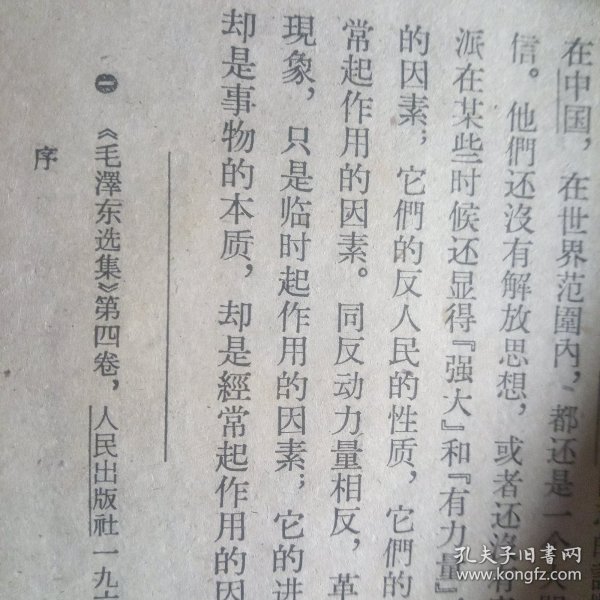 在中国，在世界范圍內，都还是一个
信。他們还沒有解放思想，或者还沒有
派在某些时候还显得『强大』和『有力量』
的因素；它們的反人民的性质，它們的
常起作用的因素。同反动力量相反，革
現象，只是临时起作用的因素；它的进
却是事物的本质，却是經常起作用的因
㊀《毛澤东选集》第四卷，人民出版社一九六
序
孔夫子旧书网
www.kongfz.com